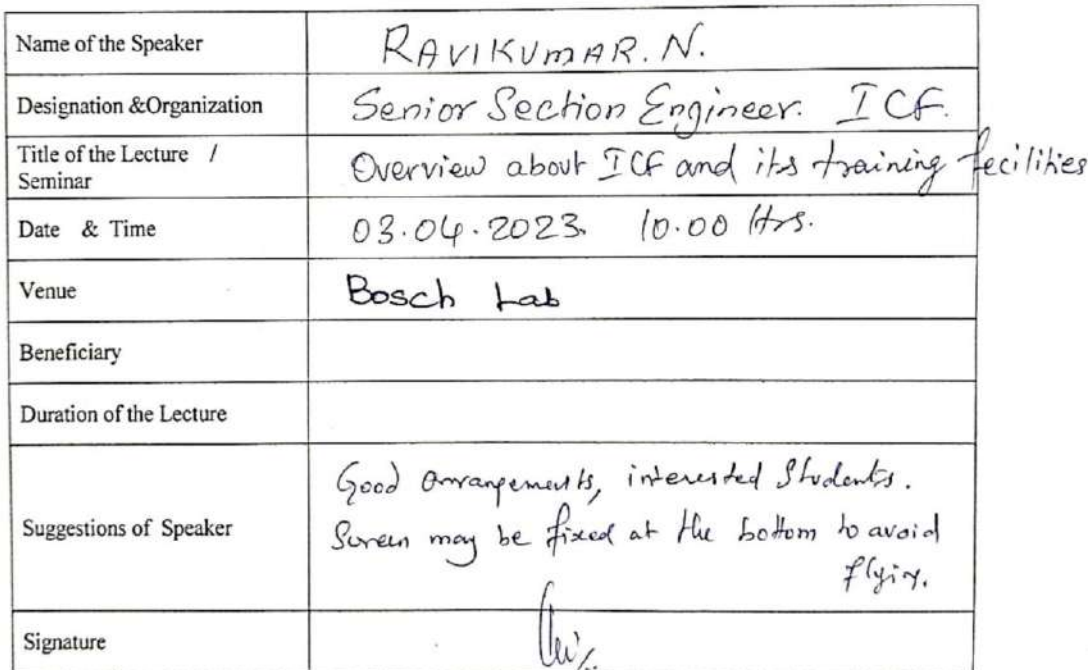 Name of the Speaker RAVIKUMAR. N.
Designation &Organization Senior Section Engineer. ICF.
Title of the Lecture / Overview about ICF and its training fecilities
Seminar
Date & Time 03.04.2023. 10.00 Hrs.
Venue Bosch Lab
Beneficiary
Duration of the Lecture
Good arrangements, interested Students.
Suggestions of Speaker Screen may be fixed at the bottom to avoid
flying.
Signature